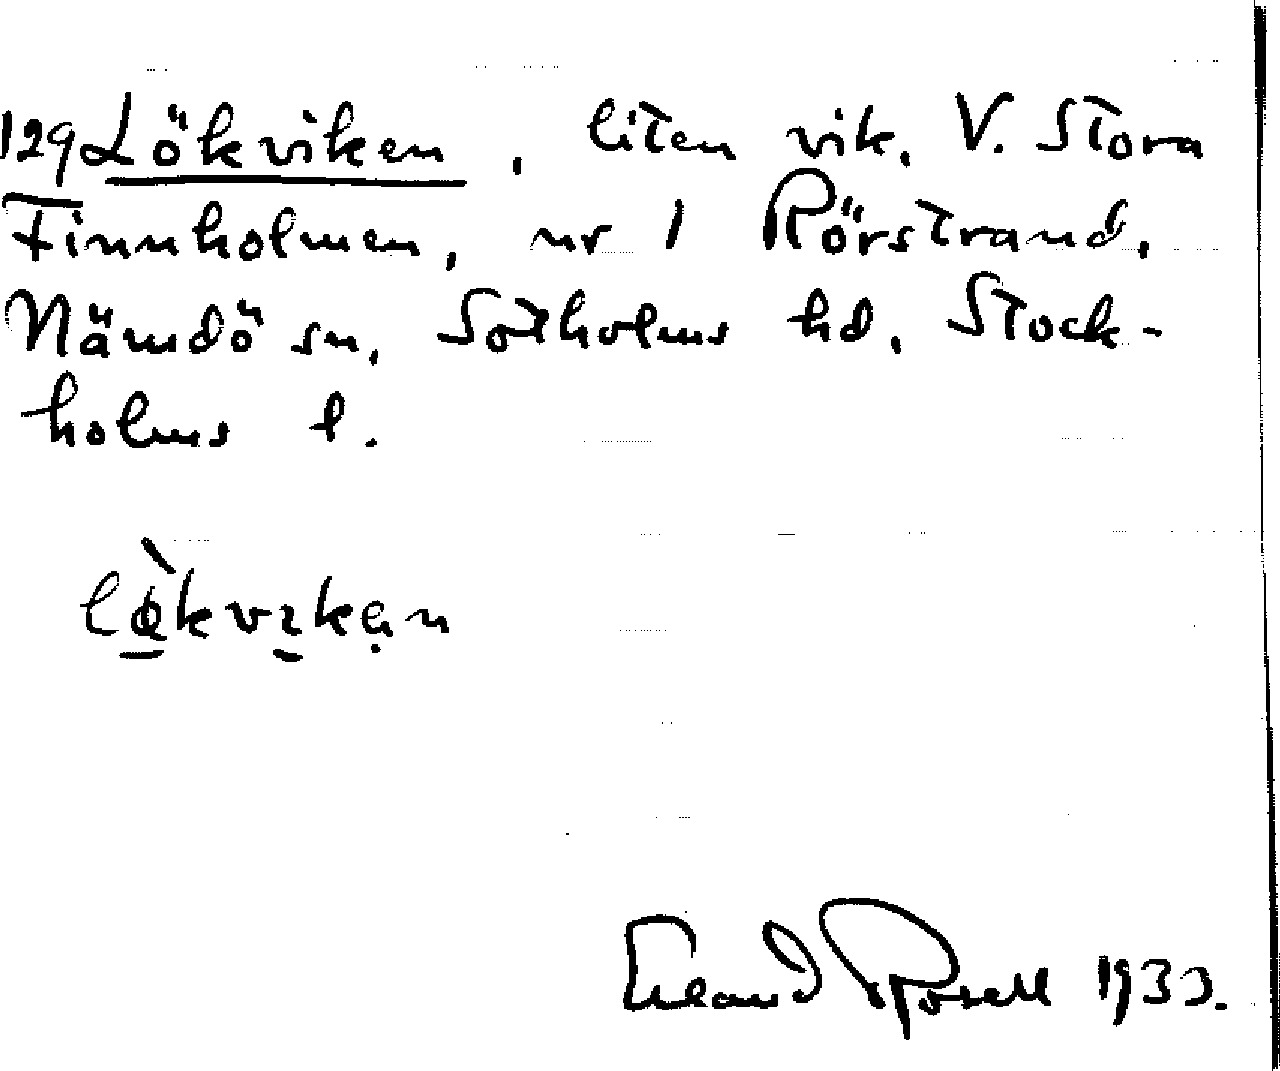 129 Lökviken, liten vik, V. Stora
Finnholmen, nr 1 Rörstrand,
Nämdö sn, Sotholms hd, Stock-
holms l.
Erland Rosell 1933.